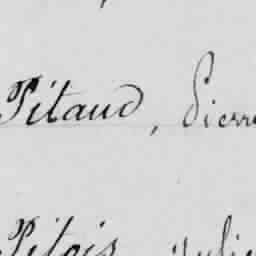 Pitaud, Pierre
Pitois, Julie